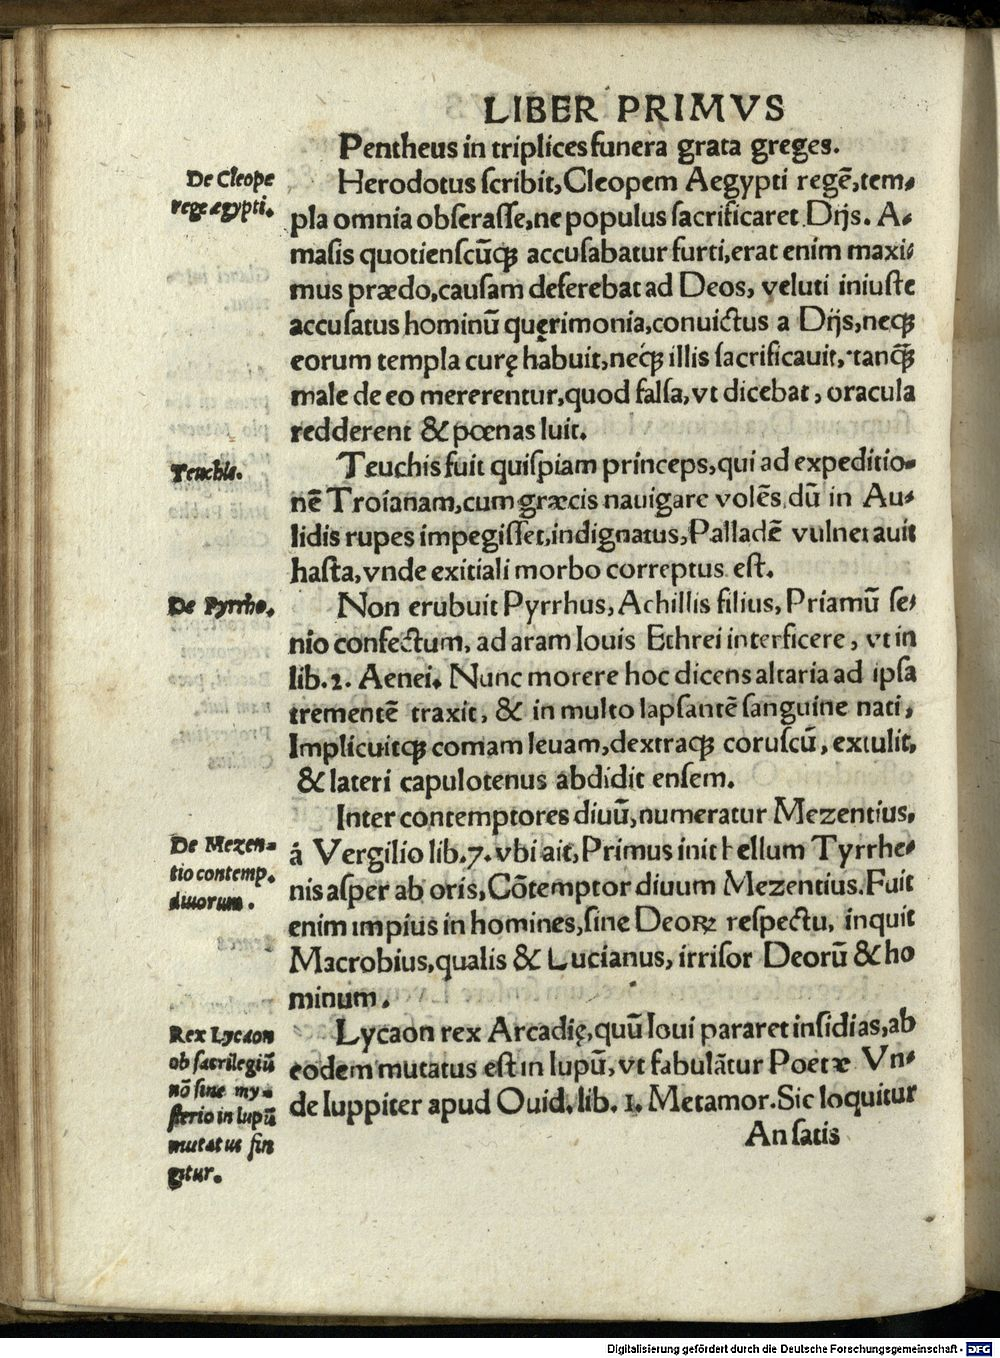 LIBER PRIMVS
Pentheus in triplices funera grata greges.
De Cleope
rege ægypti.
Herodotus ſcribit, Cleopem Aegypti regē, tem-
pla omnia obſeraſſe, ne populus ſacrificaret Dijs. A-
maſis quotienſcūqꝫ accuſabatur furti, erat enim maxi-
mus prædo, cauſam deferebat ad Deos, veluti iniuſte
accuſatus hominū querimonia, conuictus a Dijs, neqꝫ
eorum templa curę habuit, neqꝫ illis ſacrificauit, tanq̄ꝫ
male de eo mererentur, quod falſa, vt dicebat, oracula
redderent & pœnas luit.
Teuchis.
Teuchis fuit quiſpiam princeps, qui ad expeditio-
nē Troianam, cum græcis nauigare volēs, dū in Au-
lidis rupes impegiſſet, indignatus, Palladē vulnerauit
haſta, vnde exitiali morbo correptus eſt.
De Pyrrho.
Non erubuit Pyrrhus, Achillis filius, Priamū ſe-
nio confectum, ad aram Iouis Ethrei interficere, vt in
lib. 2. Aenei. Nunc morere hoc dicens altaria ad ipſa
trementē traxit, & in multo lapſantē ſanguine nati,
Implicuitqꝫ comam leuam, dextraqꝫ coruſcū, extulit,
& lateri capulotenus abdidit enſem.
Inter contemptores diuū, numeratur Mezentius,
De Mezen-
tio contemp.
diuorum.
á Vergilio lib. 7. vbi ait, Primus init bellum Tyrrhe-
nis aſper ab oris, Cōtemptor diuum Mezentius. Fuit
enim impius in homines, ſine Deoꝝ reſpectu, inquit
Macrobius, qualis & Lucianus, irriſor Deorū & ho
minum.
Rex Lycaon
ob ſacrilegiū
nō ſine my-
ſterio in lupū
mutatus fin
gitur.
Lycaon rex Arcadię, quū Ioui pararet inſidias, ab
eodem mutatus eſt in lupū, vt fabulātur Poetæ Vn-
de Iuppiter apud Ouid. lib. 1. Metamor. Sic loquitur
An ſatis
Digitalisierung gefördert durch die Deutsche Forschungsgemeinschaft - DFG